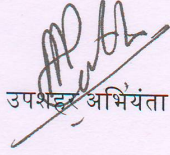 उपशहर अभियंता